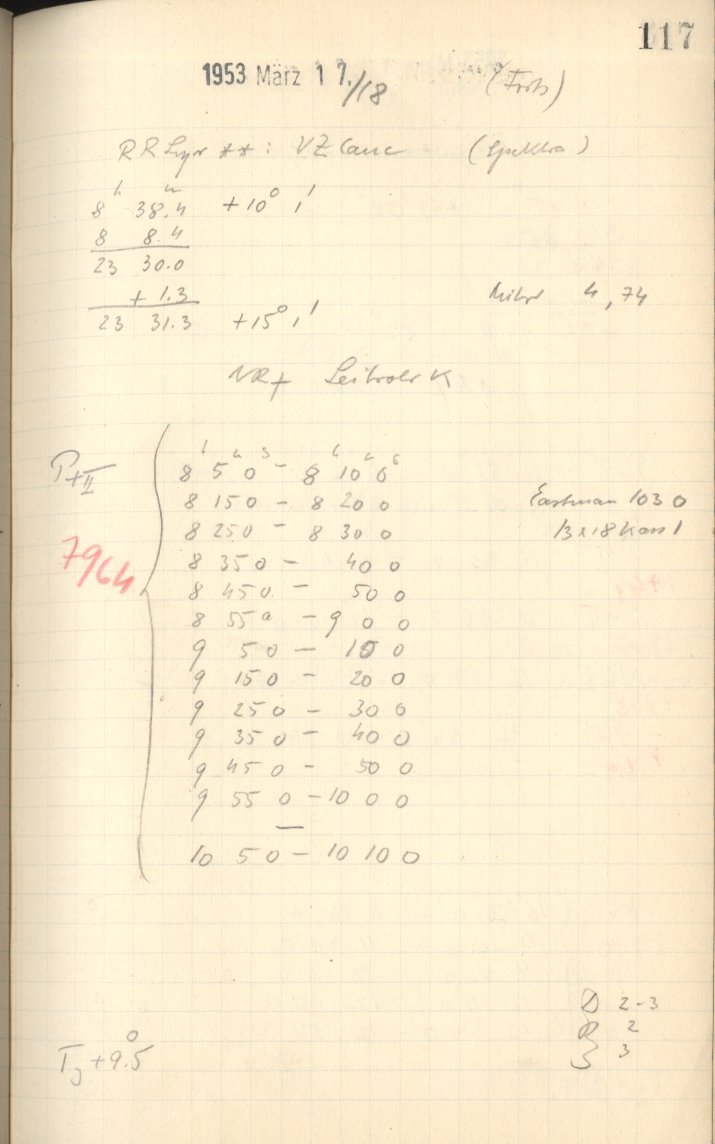 117
1953 März 17./18 (Forts)
RR Lyr **: VZ Canc (Spektra)
h m
8 38.4 +10° 1'
8 8.4
23 30.0
+ 1.3 4,74
23 31.3 +15° 1'
Leitrohr K
h m s h m s
8 5 0 - 8 10 0
8 15 0 - 8 20 0 Eastman 103 O
8 25 0 - 8 30 0 13x18 Kass 1
7964
8 35 0 - 40 0
8 45 0 - 50 0
8 55 0 - 9 0 0
9 5 0 - 10 0
9 15 0 - 20 0
9 25 0 - 30 0
9 35 0 - 40 0
9 45 0 - 50 0
9 55 0 - 10 0 0
—
10 5 0 - 10 10 0
D 2-3
R 2
S 3
+9.5°